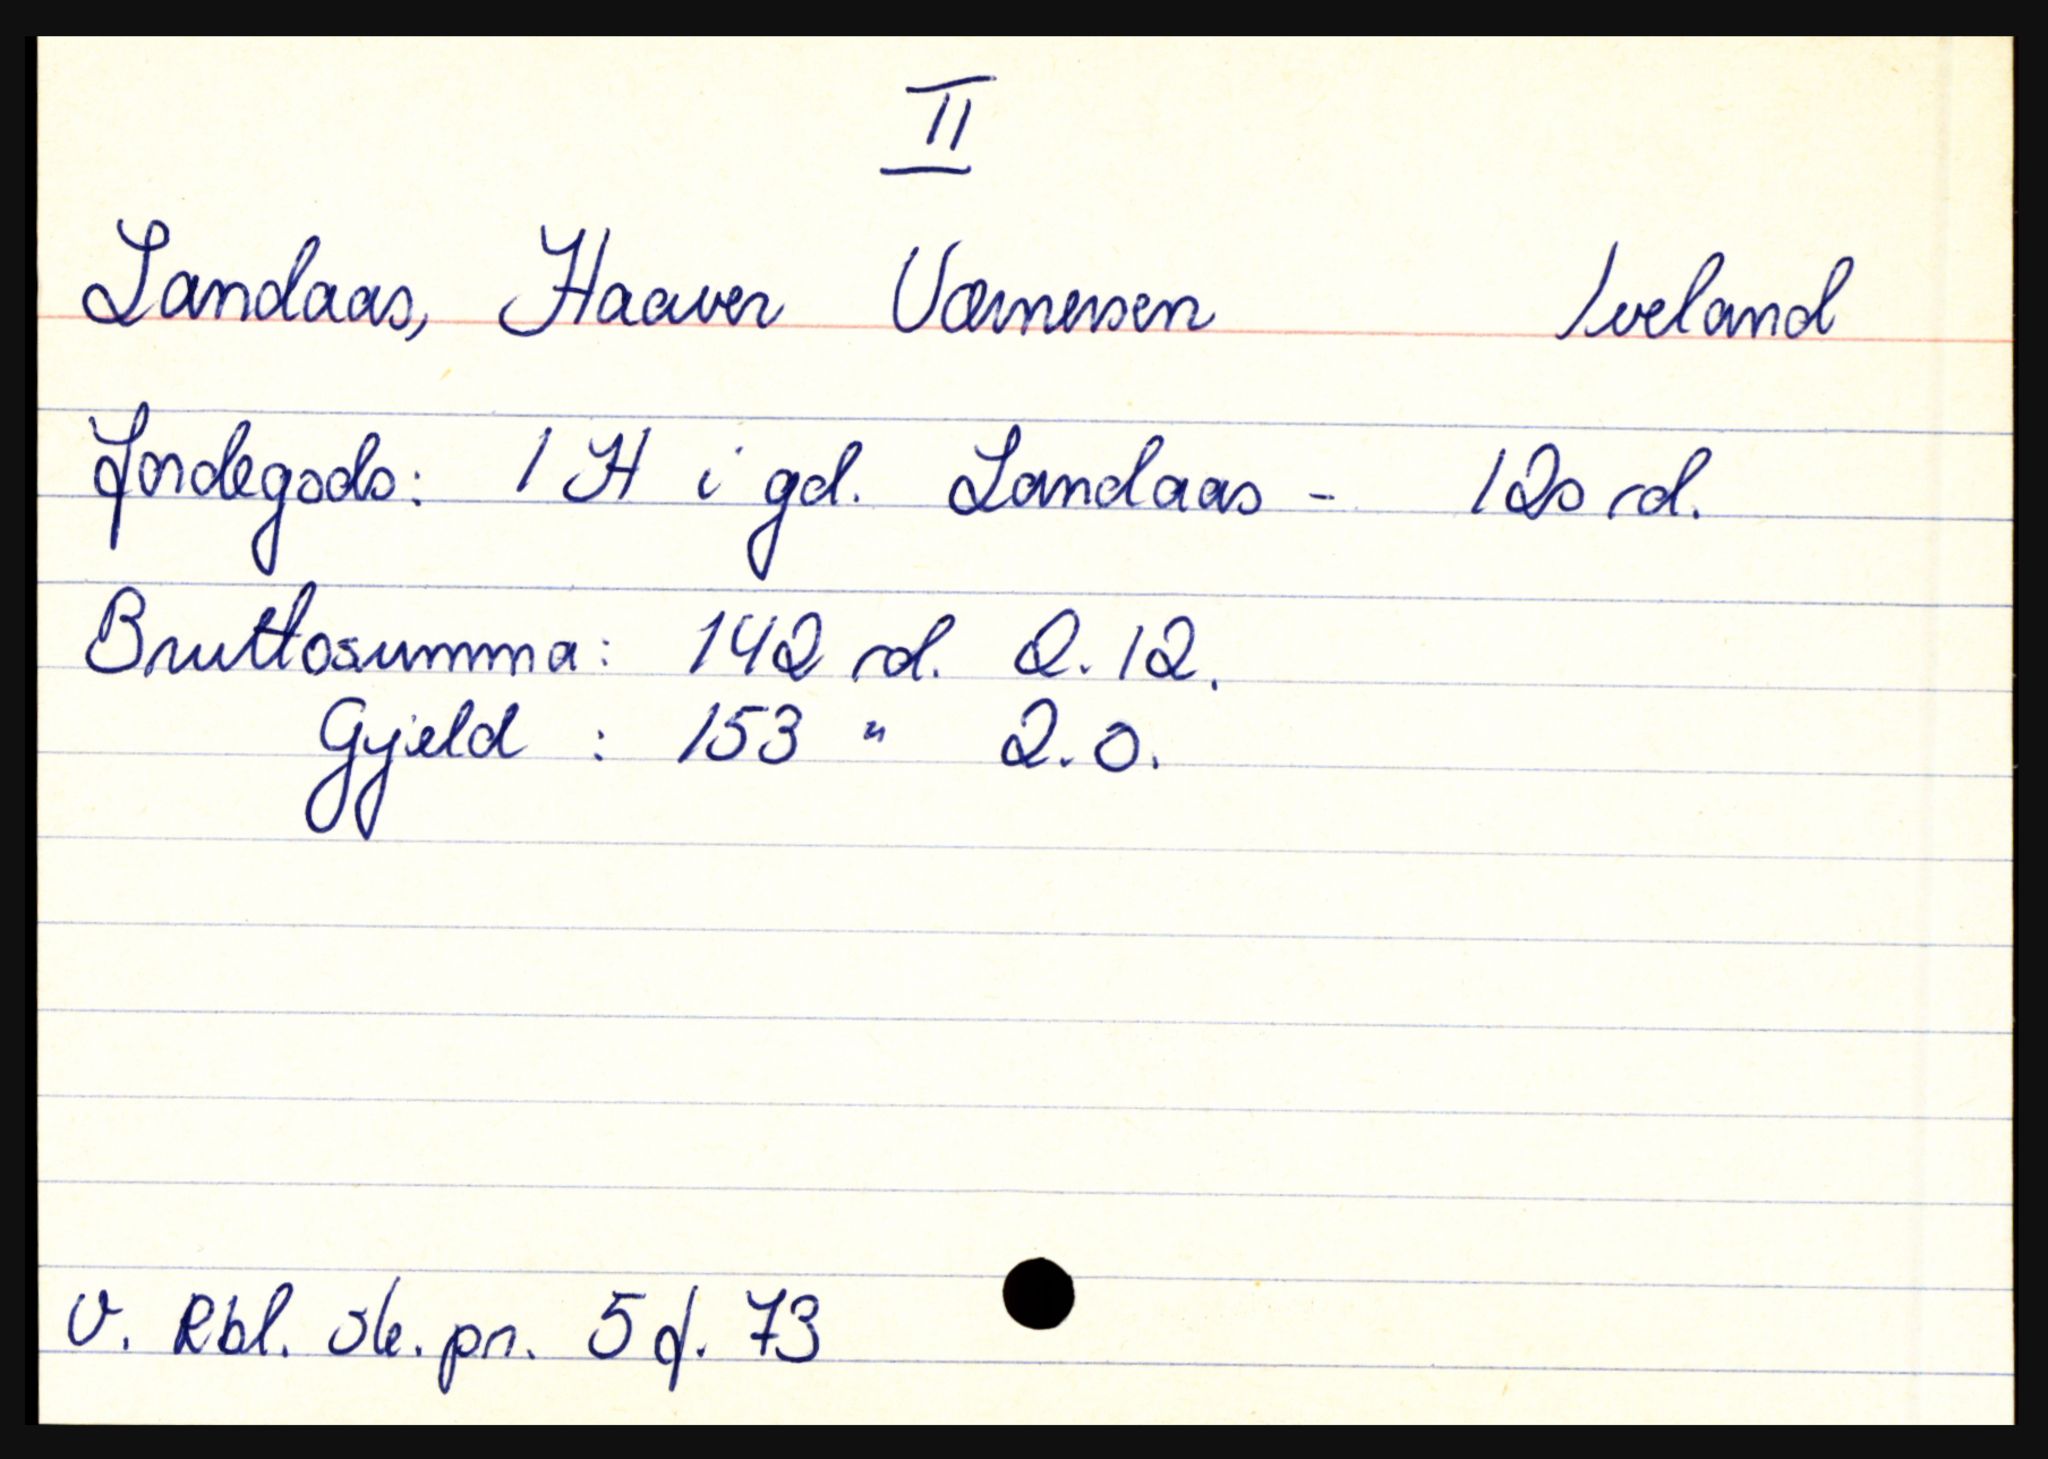 II
Landaas, Haaver Værnersen Iveland
Jordegods: 1 H i gd. Landaas - 120 rd.
Bruttosumma: 142 rd. 2.12.
Gjeld : 153 " 2.0.
V. Rbl. sk. pr. 5 f. 73